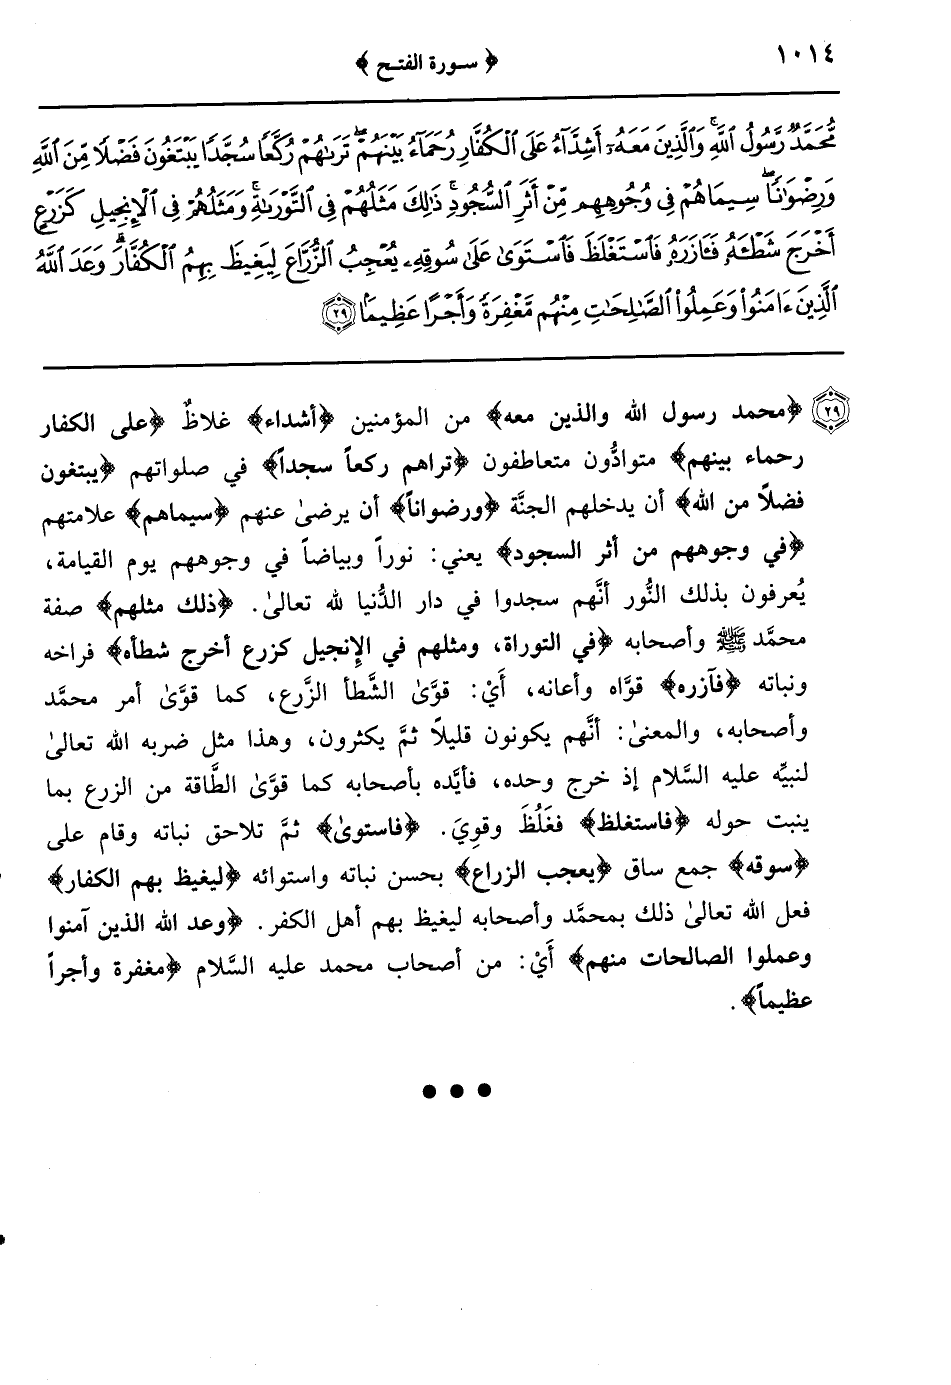 ١٠١٤
﴿ سورة الفتح ﴾
مُّحَمَّدٌ رَّسُولُ ٱللَّهِ ۚ وَٱلَّذِينَ مَعَهُۥٓ أَشِدَّآءُ عَلَى ٱلْكُفَّارِ رُحَمَآءُ بَيْنَهُمْ ۖ تَرَىٰهُمْ رُكَّعًا سُجَّدًا يَبْتَغُونَ فَضْلًا مِّنَ ٱللَّهِ
وَرِضْوَٰنًا ۖ سِيمَاهُمْ فِى وُجُوهِهِم مِّنْ أَثَرِ ٱلسُّجُودِ ۚ ذَٰلِكَ مَثَلُهُمْ فِى ٱلتَّوْرَىٰةِ ۚ وَمَثَلُهُمْ فِى ٱلْإِنجِيلِ كَزَرْعٍ
أَخْرَجَ شَطْـَٔهُۥ فَـَٔازَرَهُۥ فَٱسْتَغْلَظَ فَٱسْتَوَىٰ عَلَىٰ سُوقِهِۦ يُعْجِبُ ٱلزُّرَّاعَ لِيَغِيظَ بِهِمُ ٱلْكُفَّارَ ۗ وَعَدَ ٱللَّهُ
ٱلَّذِينَ ءَامَنُوا۟ وَعَمِلُوا۟ ٱلصَّـٰلِحَـٰتِ مِنْهُم مَّغْفِرَةً وَأَجْرًا عَظِيمًۢا ٢٩
٢٩ ﴿محمد رسول الله والذين معه﴾ من المؤمنين ﴿أشداء﴾ غلاظٌ ﴿على الكفار
رحماء بينهم﴾ متوادُّون متعاطفون ﴿تراهم ركعاً سجداً﴾ في صلواتهم ﴿يبتغون
فضلاً من الله﴾ أن يدخلهم الجنَّة ﴿ورضواناً﴾ أن يرضىٰ عنهم ﴿سيماهم﴾ علامتهم
﴿في وجوههم من أثر السجود﴾ يعني: نوراً وبياضاً في وجوههم يوم القيامة،
يُعرفون بذلك النُّور أنَّهم سجدوا في دار الدُّنيا لله تعالىٰ. ﴿ذلك مثلهم﴾ صفة
محمَّد ﷺ وأصحابه ﴿في التوراة، ومثلهم في الإنجيل كزرع أخرج شطأه﴾ فراخه
ونباته ﴿فآزره﴾ قوَّاه وأعانه، أَيْ: قوَّىٰ الشَّطأ الزَّرع، كما قوَّىٰ أمر محمَّد
وأصحابه، والمعنىٰ: أنَّهم يكونون قليلاً ثمَّ يكثرون، وهذا مثل ضربه الله تعالىٰ
لنبيِّه عليه السَّلام إذ خرج وحده، فأيَّده بأصحابه كما قوَّىٰ الطَّاقة من الزرع بما
ينبت حوله ﴿فاستغلظ﴾ فغَلُظَ وقوِيَ. ﴿فاستوىٰ﴾ ثمَّ تلاحق نباته وقام على
﴿سوقه﴾ جمع ساق ﴿يعجب الزراع﴾ بحسن نباته واستوائه ﴿ليغيظ بهم الكفار﴾
فعل الله تعالىٰ ذلك بمحمَّد وأصحابه ليغيظ بهم أهل الكفر. ﴿وعد الله الذين آمنوا
وعملوا الصالحات منهم﴾ أَيْ: من أصحاب محمد عليه السَّلام ﴿مغفرة وأجراً
عظيماً﴾.